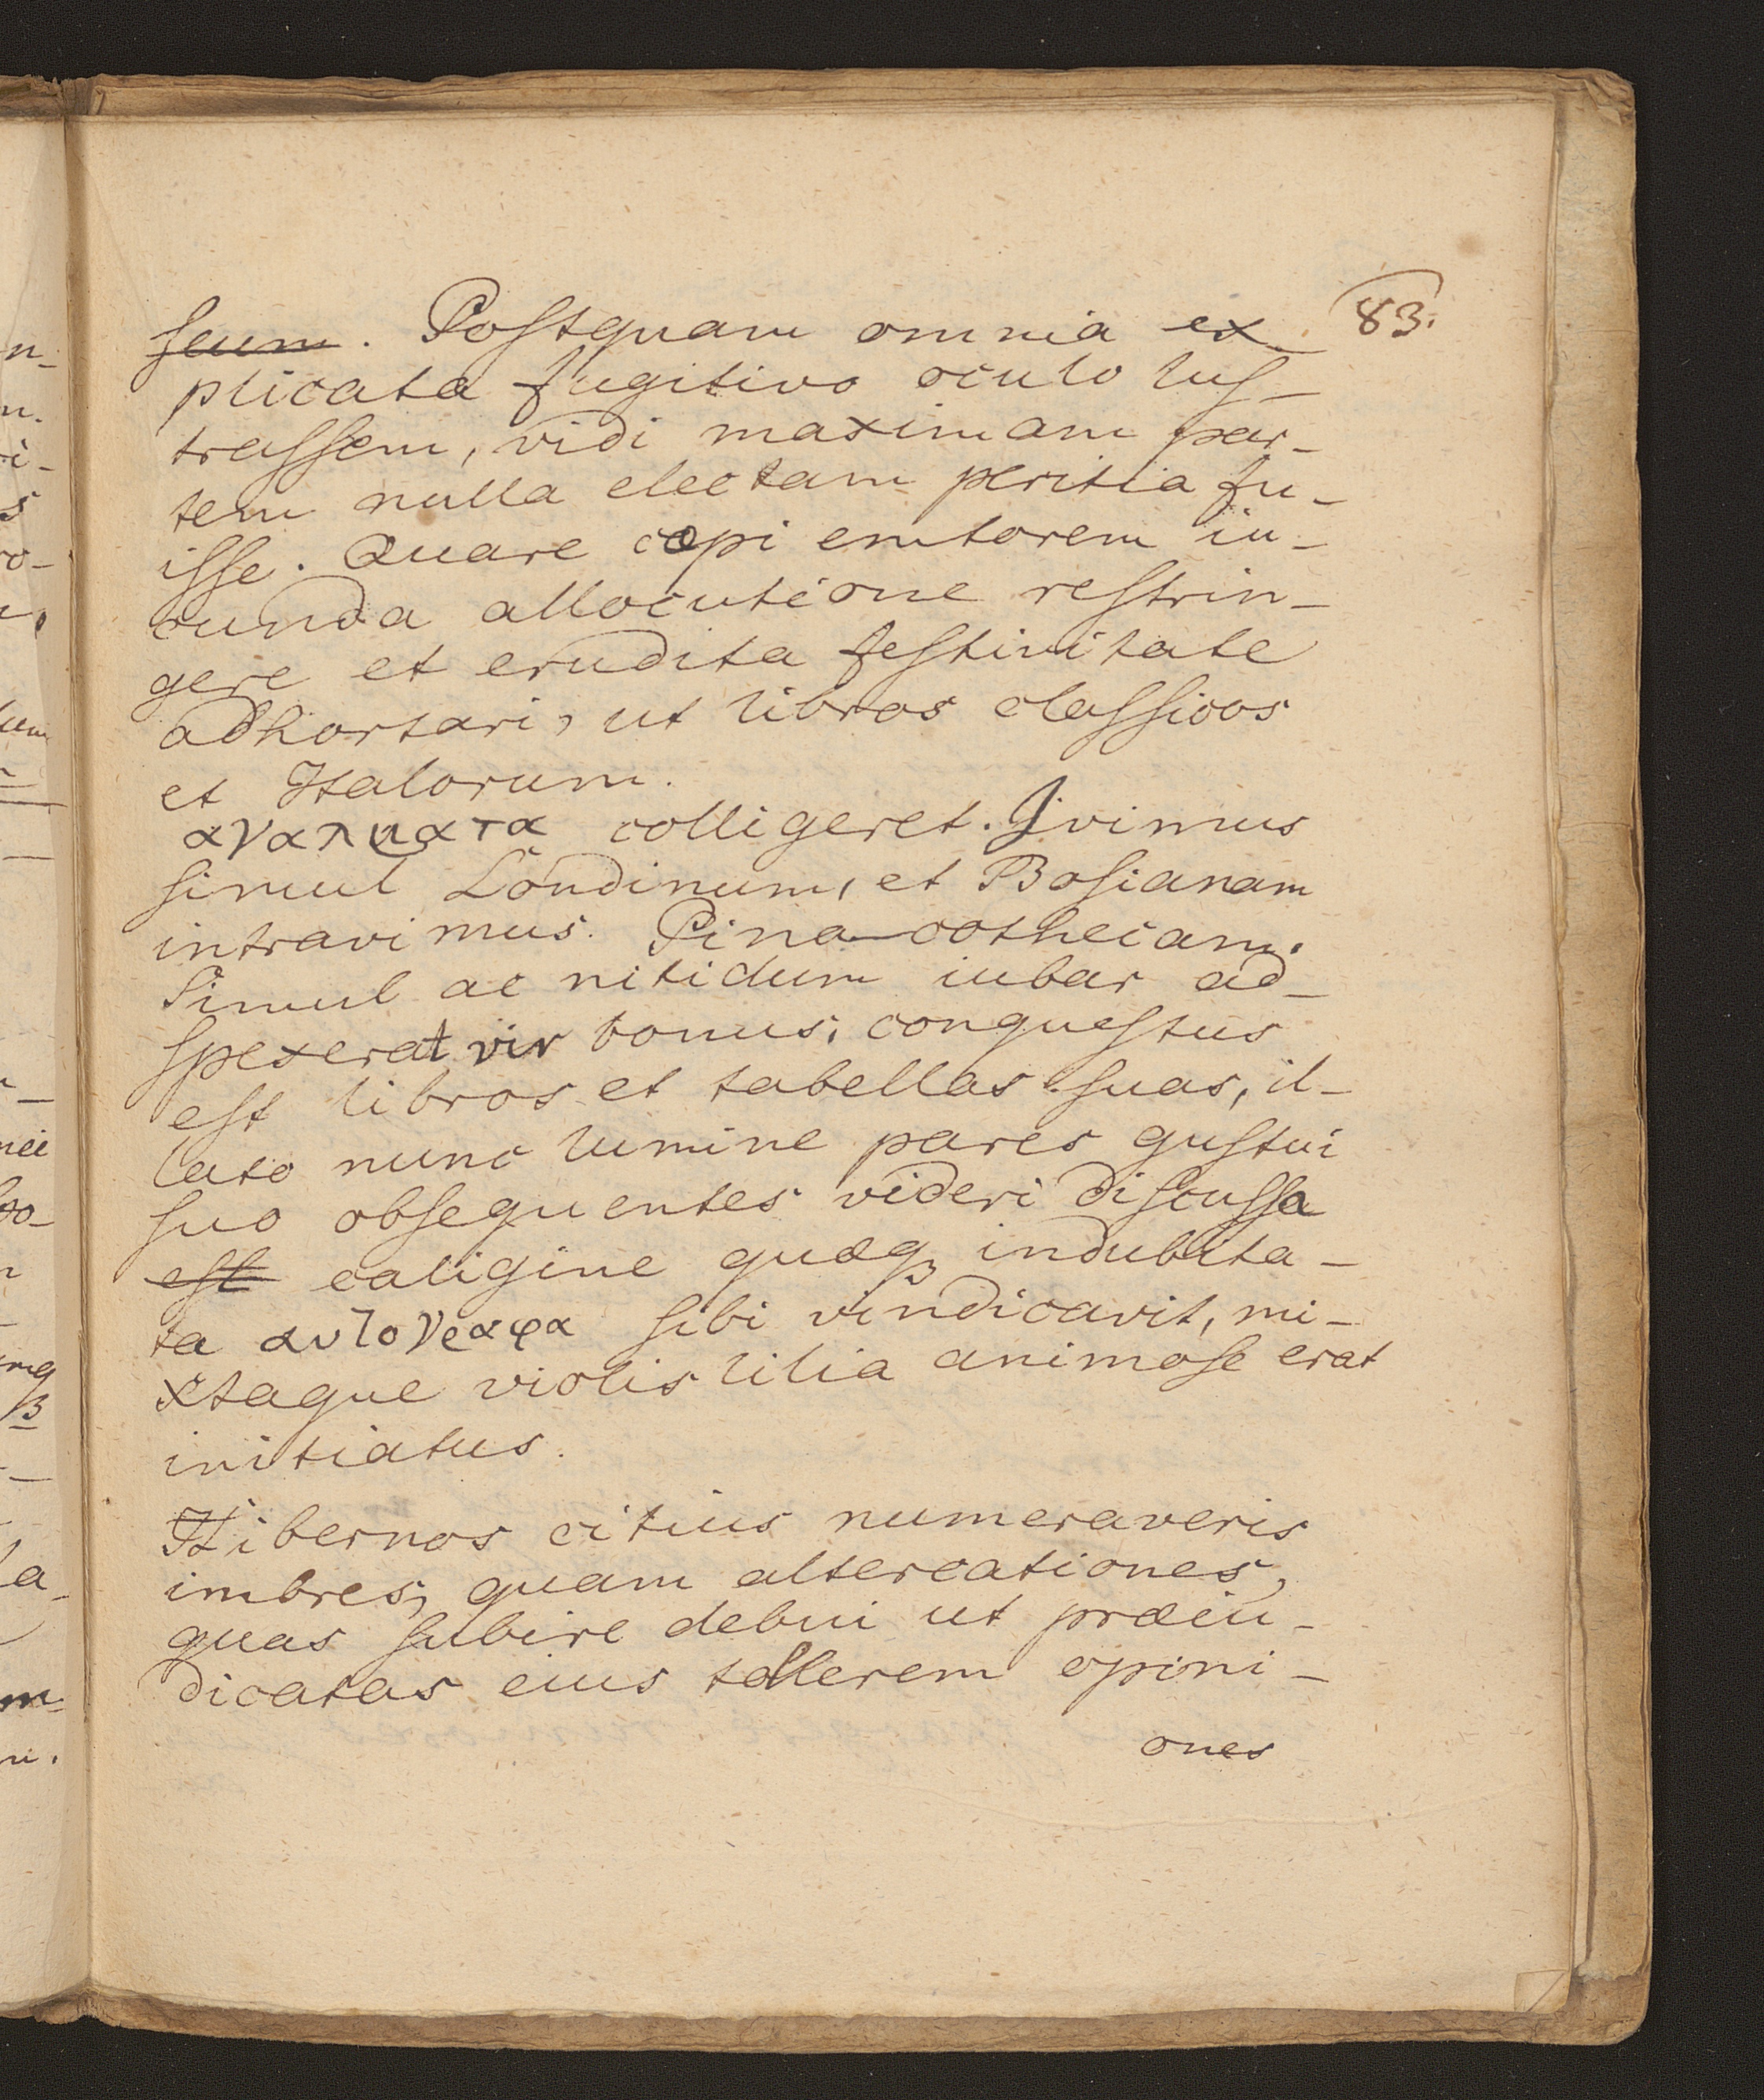 83.
ſeum. Poſtquam omnia ex
plicata fugitivo oculo luſ-
traſſem, vidi maximam par-
tem nulla electam peritia fu-
iſſe. Quare cœpi emtorem iu-
cunda allocutione reſtrin-
gere et erudita feſtivitate
adhortari, ut libros claſſicos
et Italorum.
colligeret. Ivimus
ſimul Londinum, et Boſianam
intravimus. Pinacothecam.
Simul ac nitidum iubar ad-
ſpexerat vir bonus, conqueſtus
eſt libros et tabellas ſuas, il-
lato nunc lumine pares guſtui
ſuo obſequentes videri diſcuſſa
eſt caligine quæq3 indubita-
ta αυτογραφα ſibi vindicavit, mi-
xtaque violis lilia animoſe erat
initiatus.
Hibernos citius numeraveris
imbres, quam altercationes,
quas ſubire debui ut præiu-
dicatas eius tollerem opini-
ones